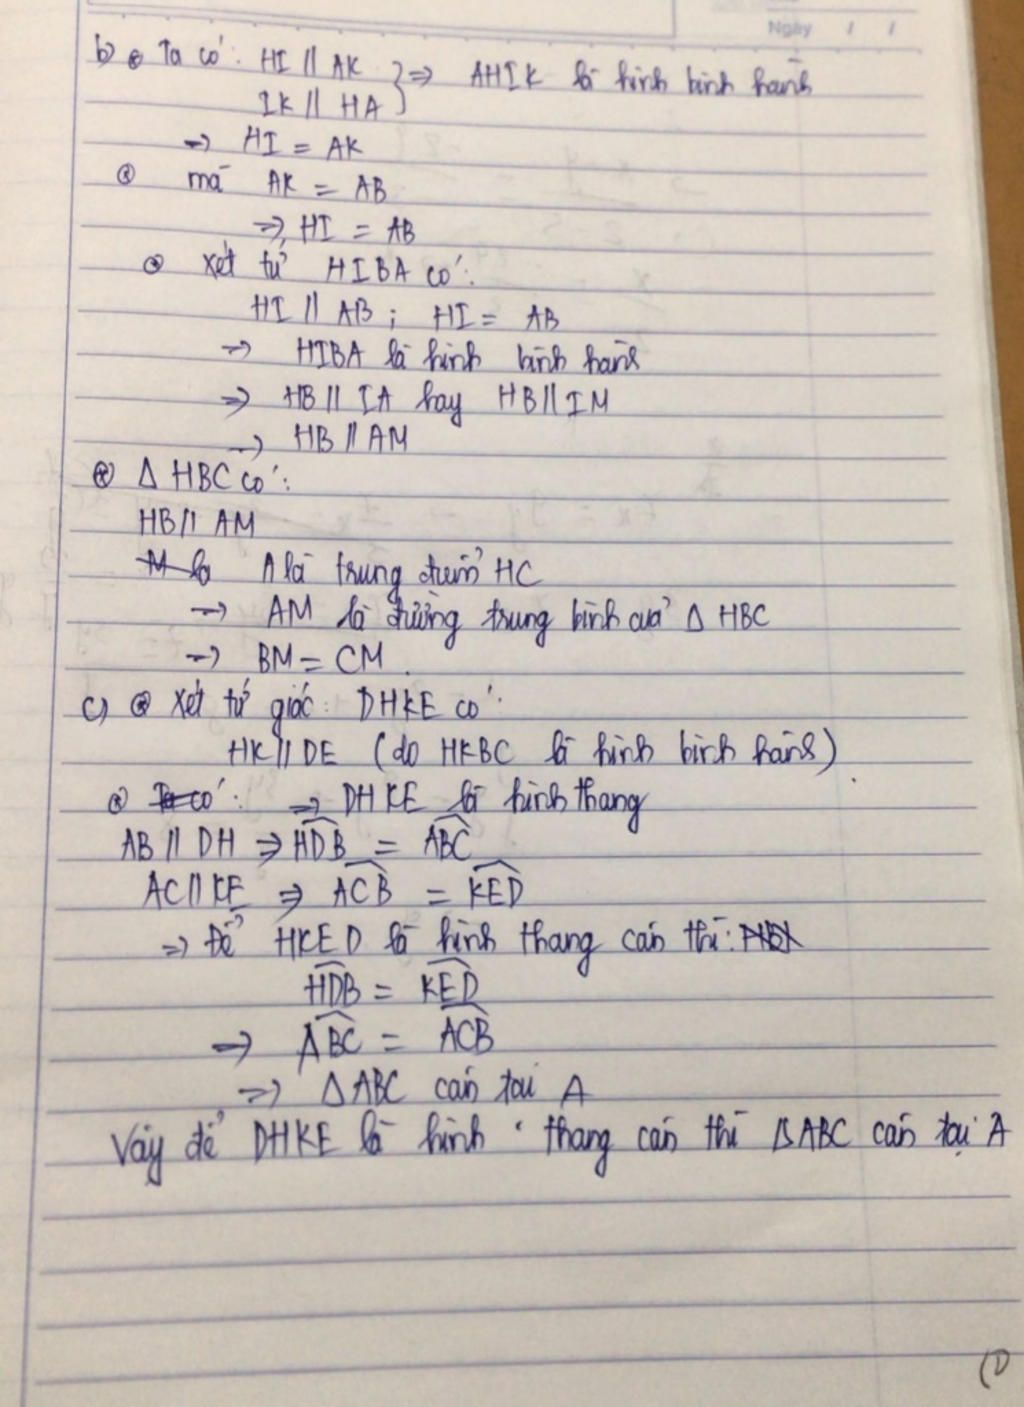 Ngày / /
b) Ta có: HI // AK } => AHIK là hình bình hành
IK // HA
=> HI = AK
mà AK = AB
=> HI = AB
Xét tứ HIBA có:
HI // AB ; HI = AB
=> HIBA là hình bình hành
=> HB // IA hay HB // IM
=> HB // AM
Δ HBC có:
HB // AM
A là trung điểm HC
=> AM là đường trung bình của Δ HBC
=> BM = CM.
c) Xét tứ giác: DHKE có:
HK // DE (do HKBC là hình bình hành)
Ta có: => DHKE là hình thang
AB // DH => HDB = ABC
AC // KE => ACB = KED
=> Để HKED là hình thang cân thì:
HDB = KED
=> ABC = ACB
=> Δ ABC cân tại A
Vậy để DHKE là hình thang cân thì Δ ABC cân tại A